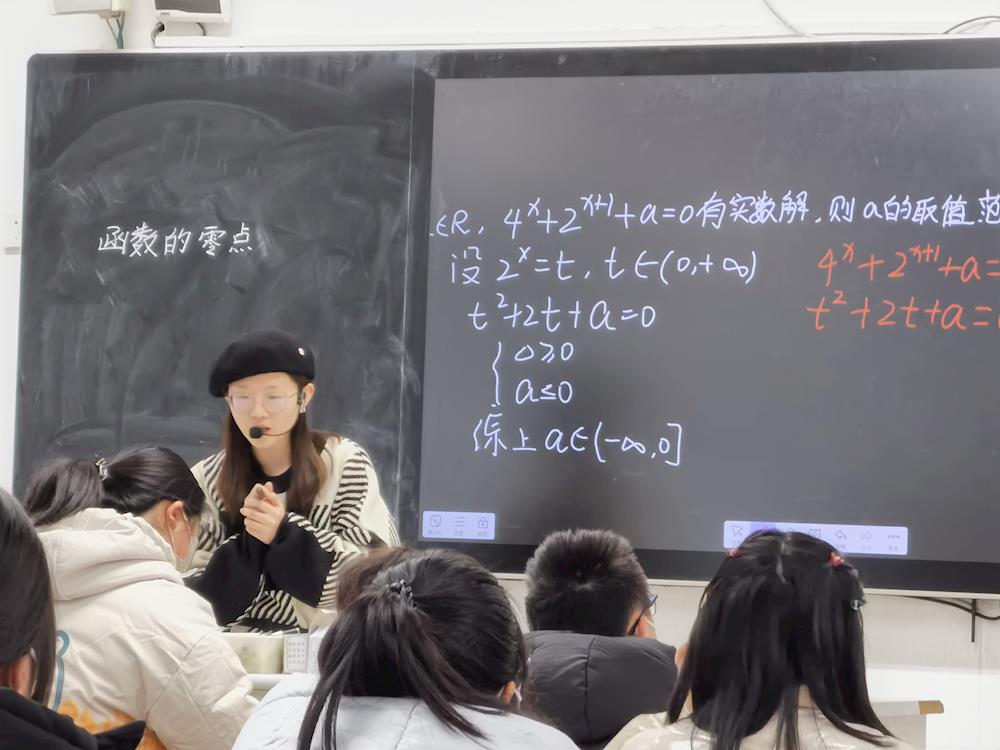 函数的零点
∈R, 4^x+2^(x+1)+a=0有实数解,则a的取值范
设 2^x=t, t∈(0,+∞)
t²+2t+a=0
{ Δ≥0
a≤0
综上 a∈(-∞,0]
4^x+2^(x+1)+a=
t²+2t+a=